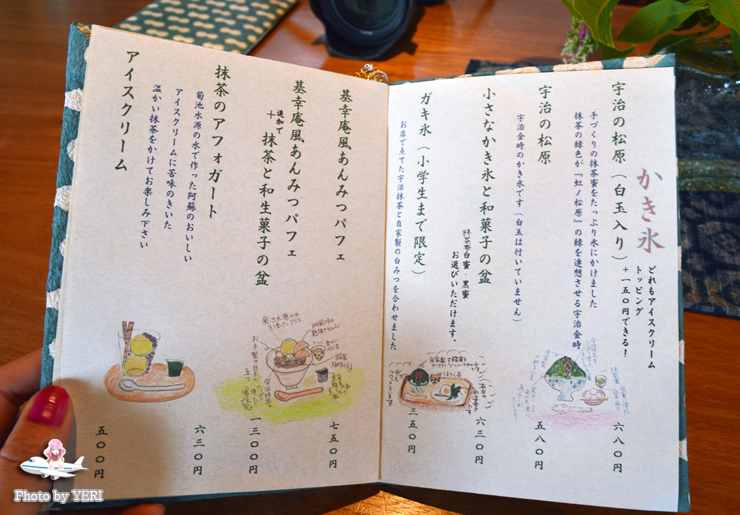 かき氷
どれもアイスクリーム
トッピング
+一五〇円できる！
宇治の松原（白玉入り）
六八〇円
手づくりの抹茶蜜をたっぷり氷にかけました
抹茶の緑色が『虹ノ松原』の緑を連想させる宇治金時
宇治の松原
五八〇円
宇治金時のかき氷です（白玉は付いていません）
小さなかき氷と和菓子の盆
六三〇円
抹茶蜜・白蜜・黒蜜
お選びいただけます。
ガキ氷（小学生まで限定）
三五〇円
お店で点てた宇治抹茶と自家製の白みつを合わせました
基幸庵風あんみつパフェ
七五〇円
基幸庵風あんみつパフェ
追加で
+抹茶と和生菓子の盆
一三〇〇円
抹茶のアフォガート
六三〇円
菊池水源の水で作った阿蘇のおいしい
アイスクリームに苦味のきいた
温かい抹茶をかけてお楽しみ下さい
アイスクリーム
五〇〇円
Photo by YERI